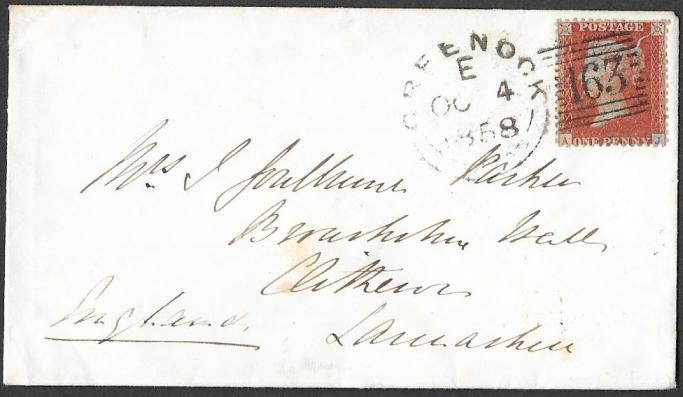 POSTAGE
GREENOCK
E
OC 4
1858
163
A ONE PENNY J
Mrs J Goulburne Parker
Browsholme Hall
Clitheroe
England
Lancashire